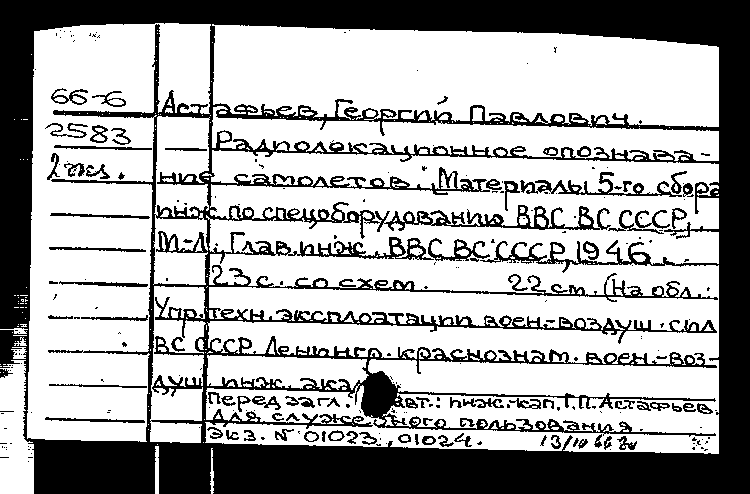 66-6 Астафьев, Георгий Павлович.
2583 Радиолокационное опознава-
2 экз. ние самолетов. [Материалы 5-го сбора
инж. по спецоборудованию ВВС ВС СССР].
М.-Л., Глав. инж. ВВС ВС СССР, 1946.
23 с. со схем. 22 см. (На обл.:
Упр. техн. эксплоатации воен.-воздуш. сил
ВС СССР. Ленингр. краснознам. воен.-воз-
душ. инж. ака
Перед загл. авт.: инж.-кап. Г.П. Астафьев.
Для служебного пользования.
Экз. № 01023, 01024. 13/